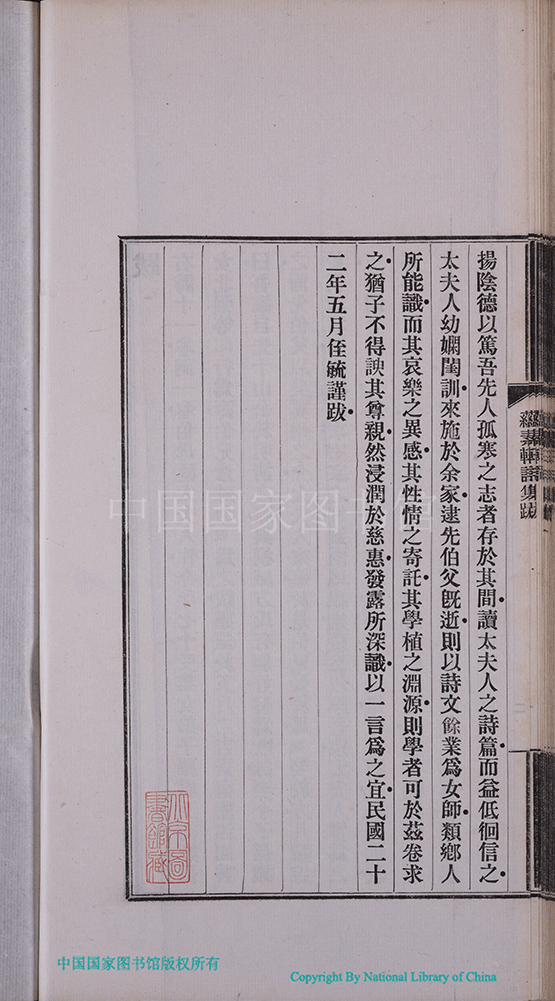 揚陰德以篤吾先人孤寒之志者存於其間讀太夫人之詩篇而益低徊信之
太夫人幼嫻閨訓來施於余家逮先伯父既逝則以詩文餘業爲女師類鄉人
所能識而其哀樂之異感其性情之寄託其學植之淵源則學者可於茲卷求
之猶子不得諛其尊親然浸潤於慈惠發露所深識以一言爲之宜民國二十
二年五月侄毓謹跋
中国国家图书馆
中国国家图书馆版权所有
Copyright By National Library of China